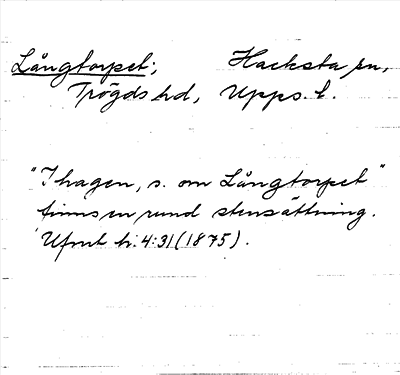 Långtorpet; Hacksta sn,
Trögds hd, Upps. l.
"I hagen, s. om Långtorpet"
finns en rund stensättning.
Ufmt h: 4:31 (1875).